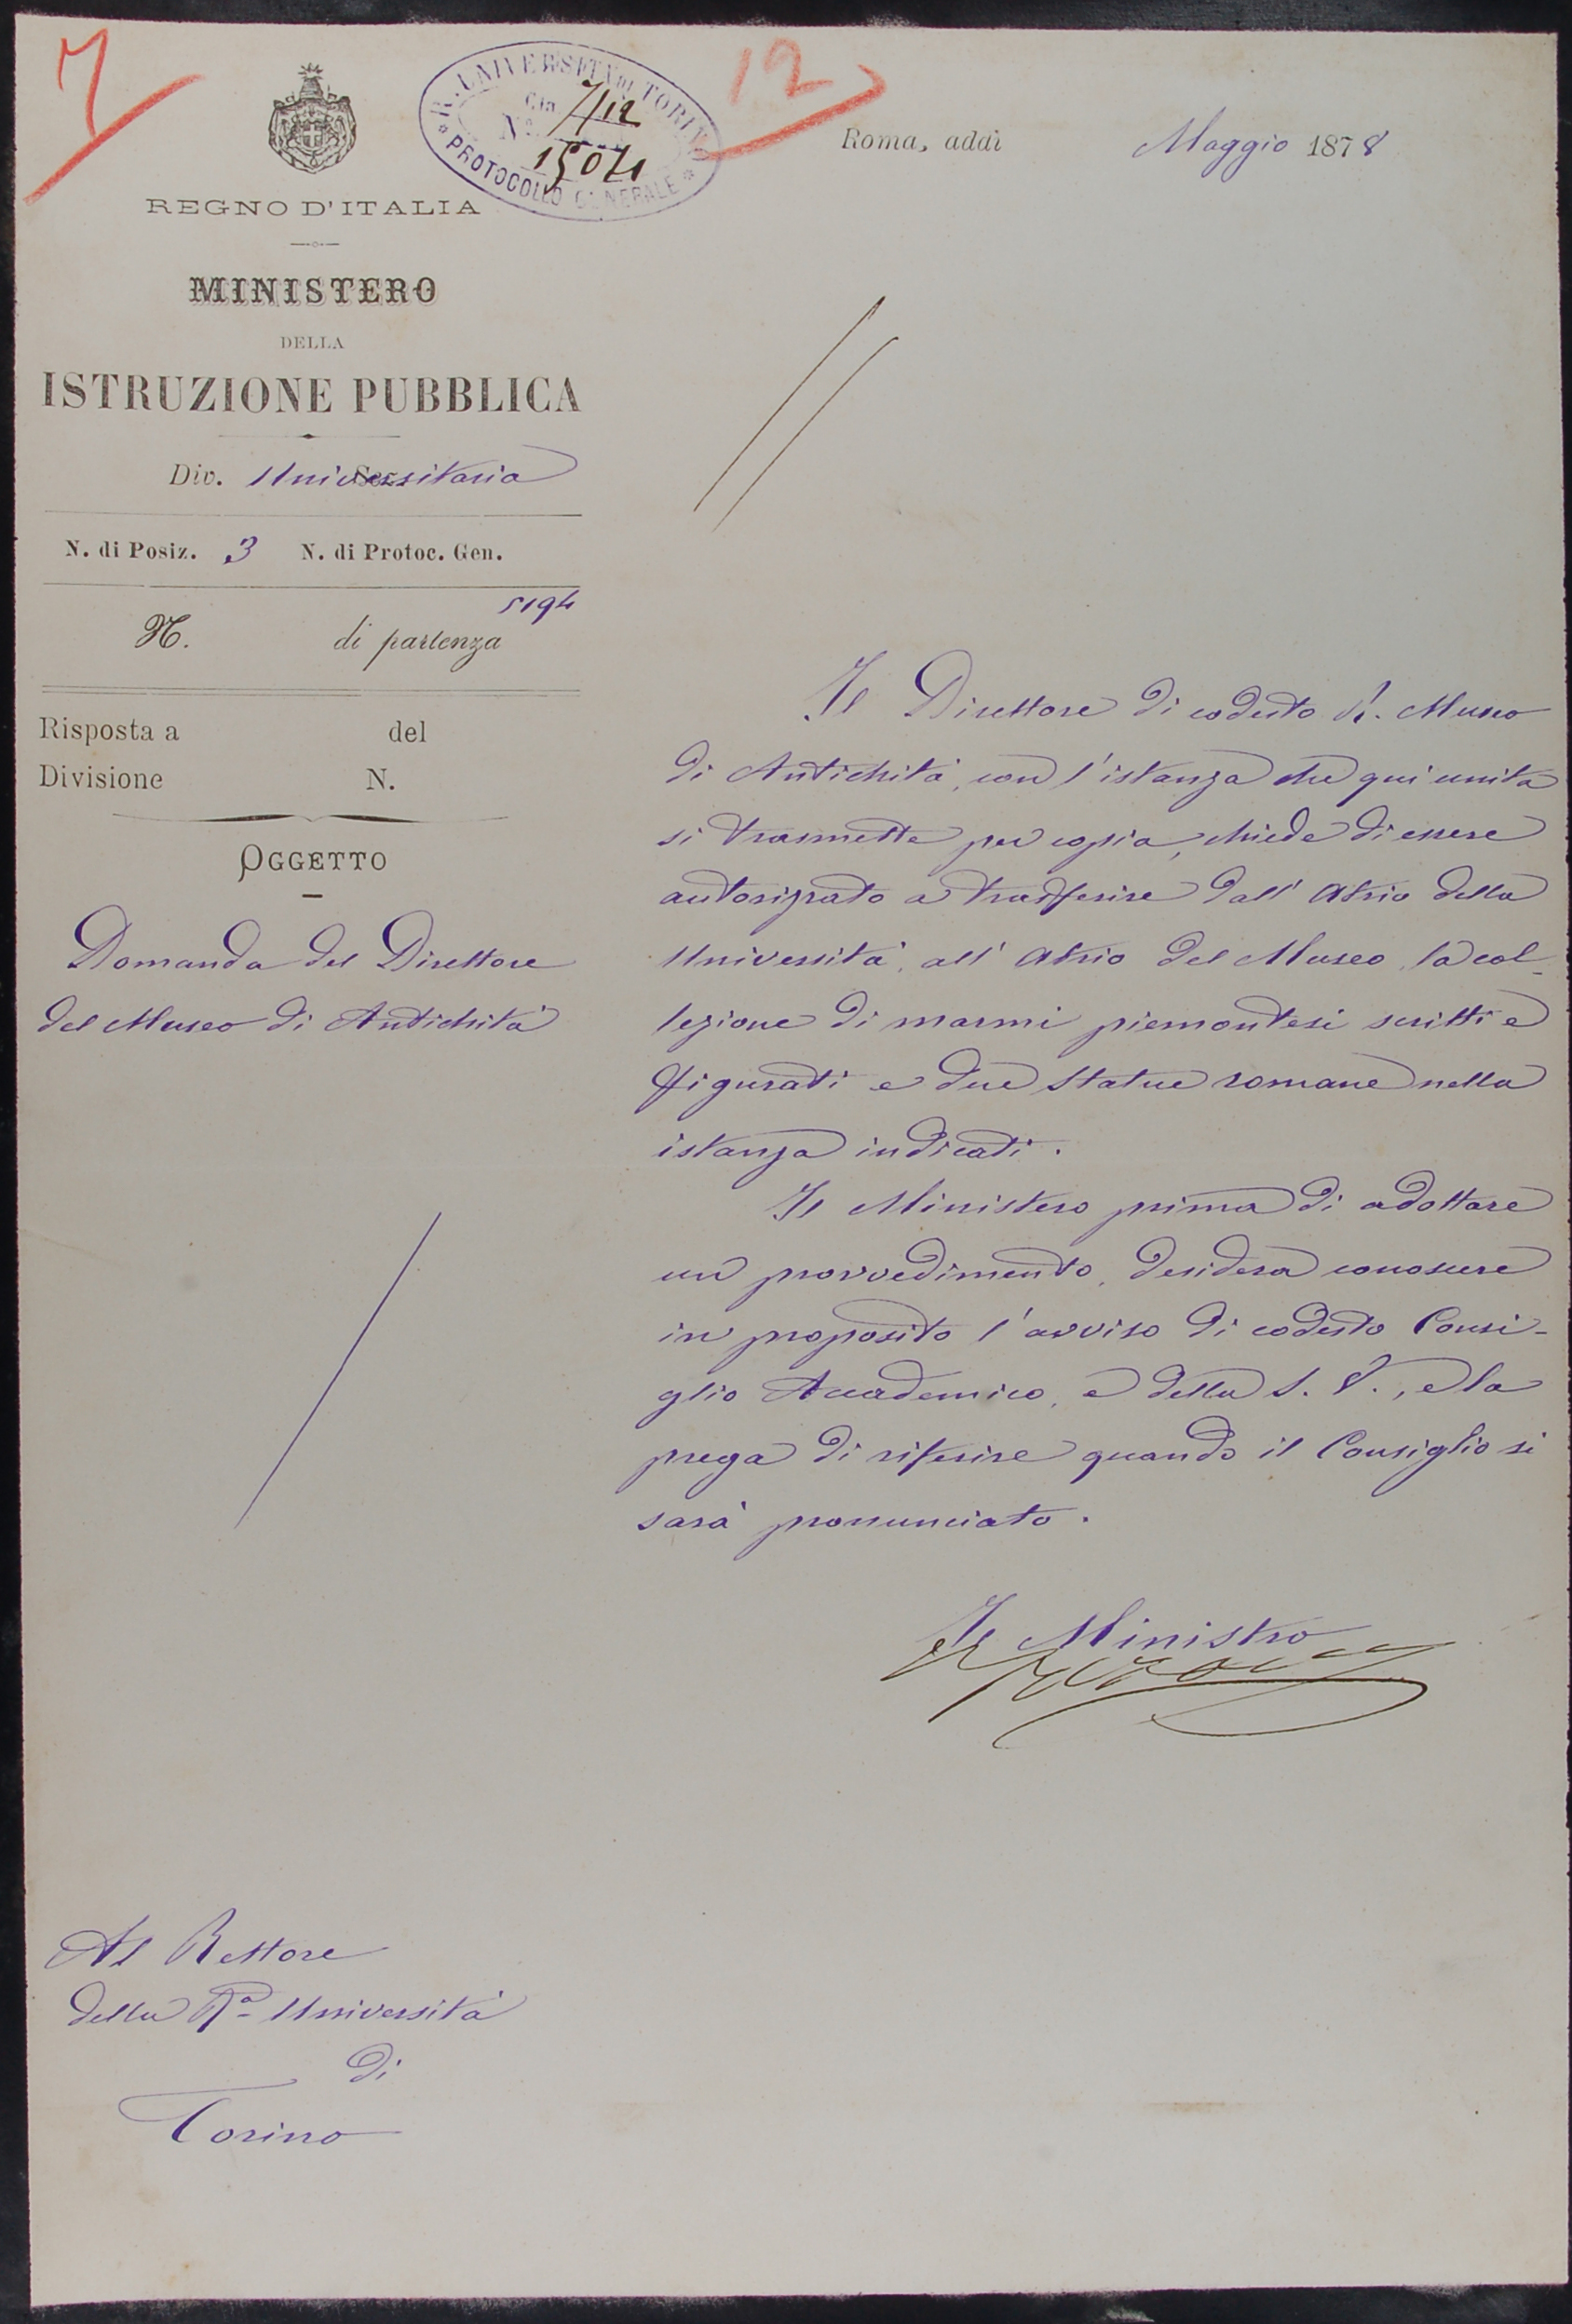 7
12
R. UNIVERSITÀ DI TORINO
Cla 7/12
N°
1504
PROTOCOLLO GENERALE
Roma, addì Maggio 1878
REGNO D'ITALIA
MINISTERO
DELLA
ISTRUZIONE PUBBLICA
Div. Universitaria
N. di Posiz. 3 N. di Protoc. Gen.
5194
N. di partenza
Risposta a del
Divisione N.
OGGETTO
Domanda del Direttore
del Museo di Antichità
Il Direttore di codesto R. Museo
di Antichità, con l'istanza che qui unita
si trasmette per copia, chiede di essere
autorizzato a trasferire dall'Atrio della
Università, all'Atrio del Museo, la col-
lezione di marmi piemontesi scritti e
figurati e due statue romane nella
istanza indicati.
Il Ministero prima di adottare
un provvedimento, desidera conoscere
in proposito l'avviso di codesto Consi-
glio Accademico, e della S. V., e la
prega di riferire quando il Consiglio si
sarà pronunciato.
Il Ministro
Al Rettore
della Rª Università
di
Torino